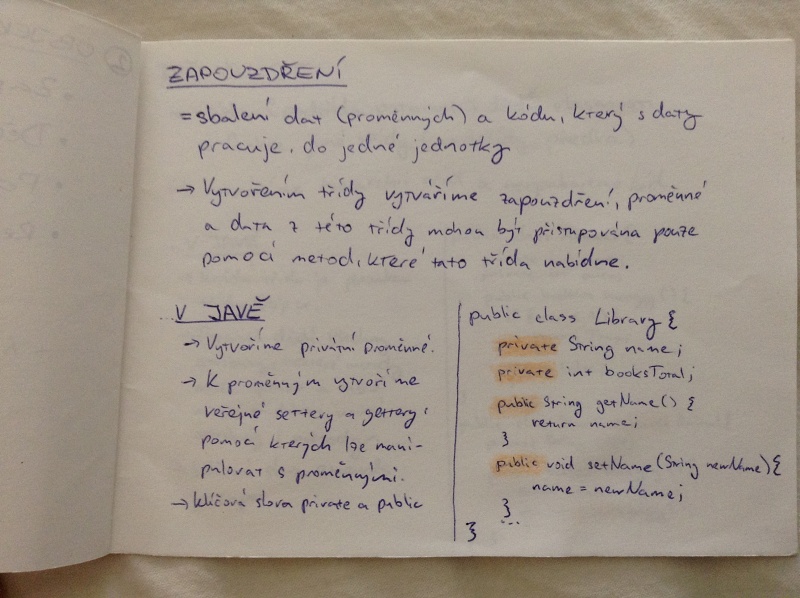 ZAPOUZDŘENÍ
= sbalení dat (proměnných) a kódu, který s daty
pracuje, do jedné jednotky
→ Vytvořením třídy vytváříme zapouzdření, proměnné
a data z této třídy mohou být přistupována pouze
pomocí metod, které tato třída nabídne.
...V JAVĚ
→ Vytvoříme privátní proměnné.
→ K proměnným vytvoříme
veřejné settery a gettery,
pomocí kterých lze mani-
pulovat s proměnnými.
→ klíčová slova private a public
public class Library {
private String name;
private int booksTotal;
public String getName() {
return name;
}
public void setName(String newName){
name = newName;
}
...
}